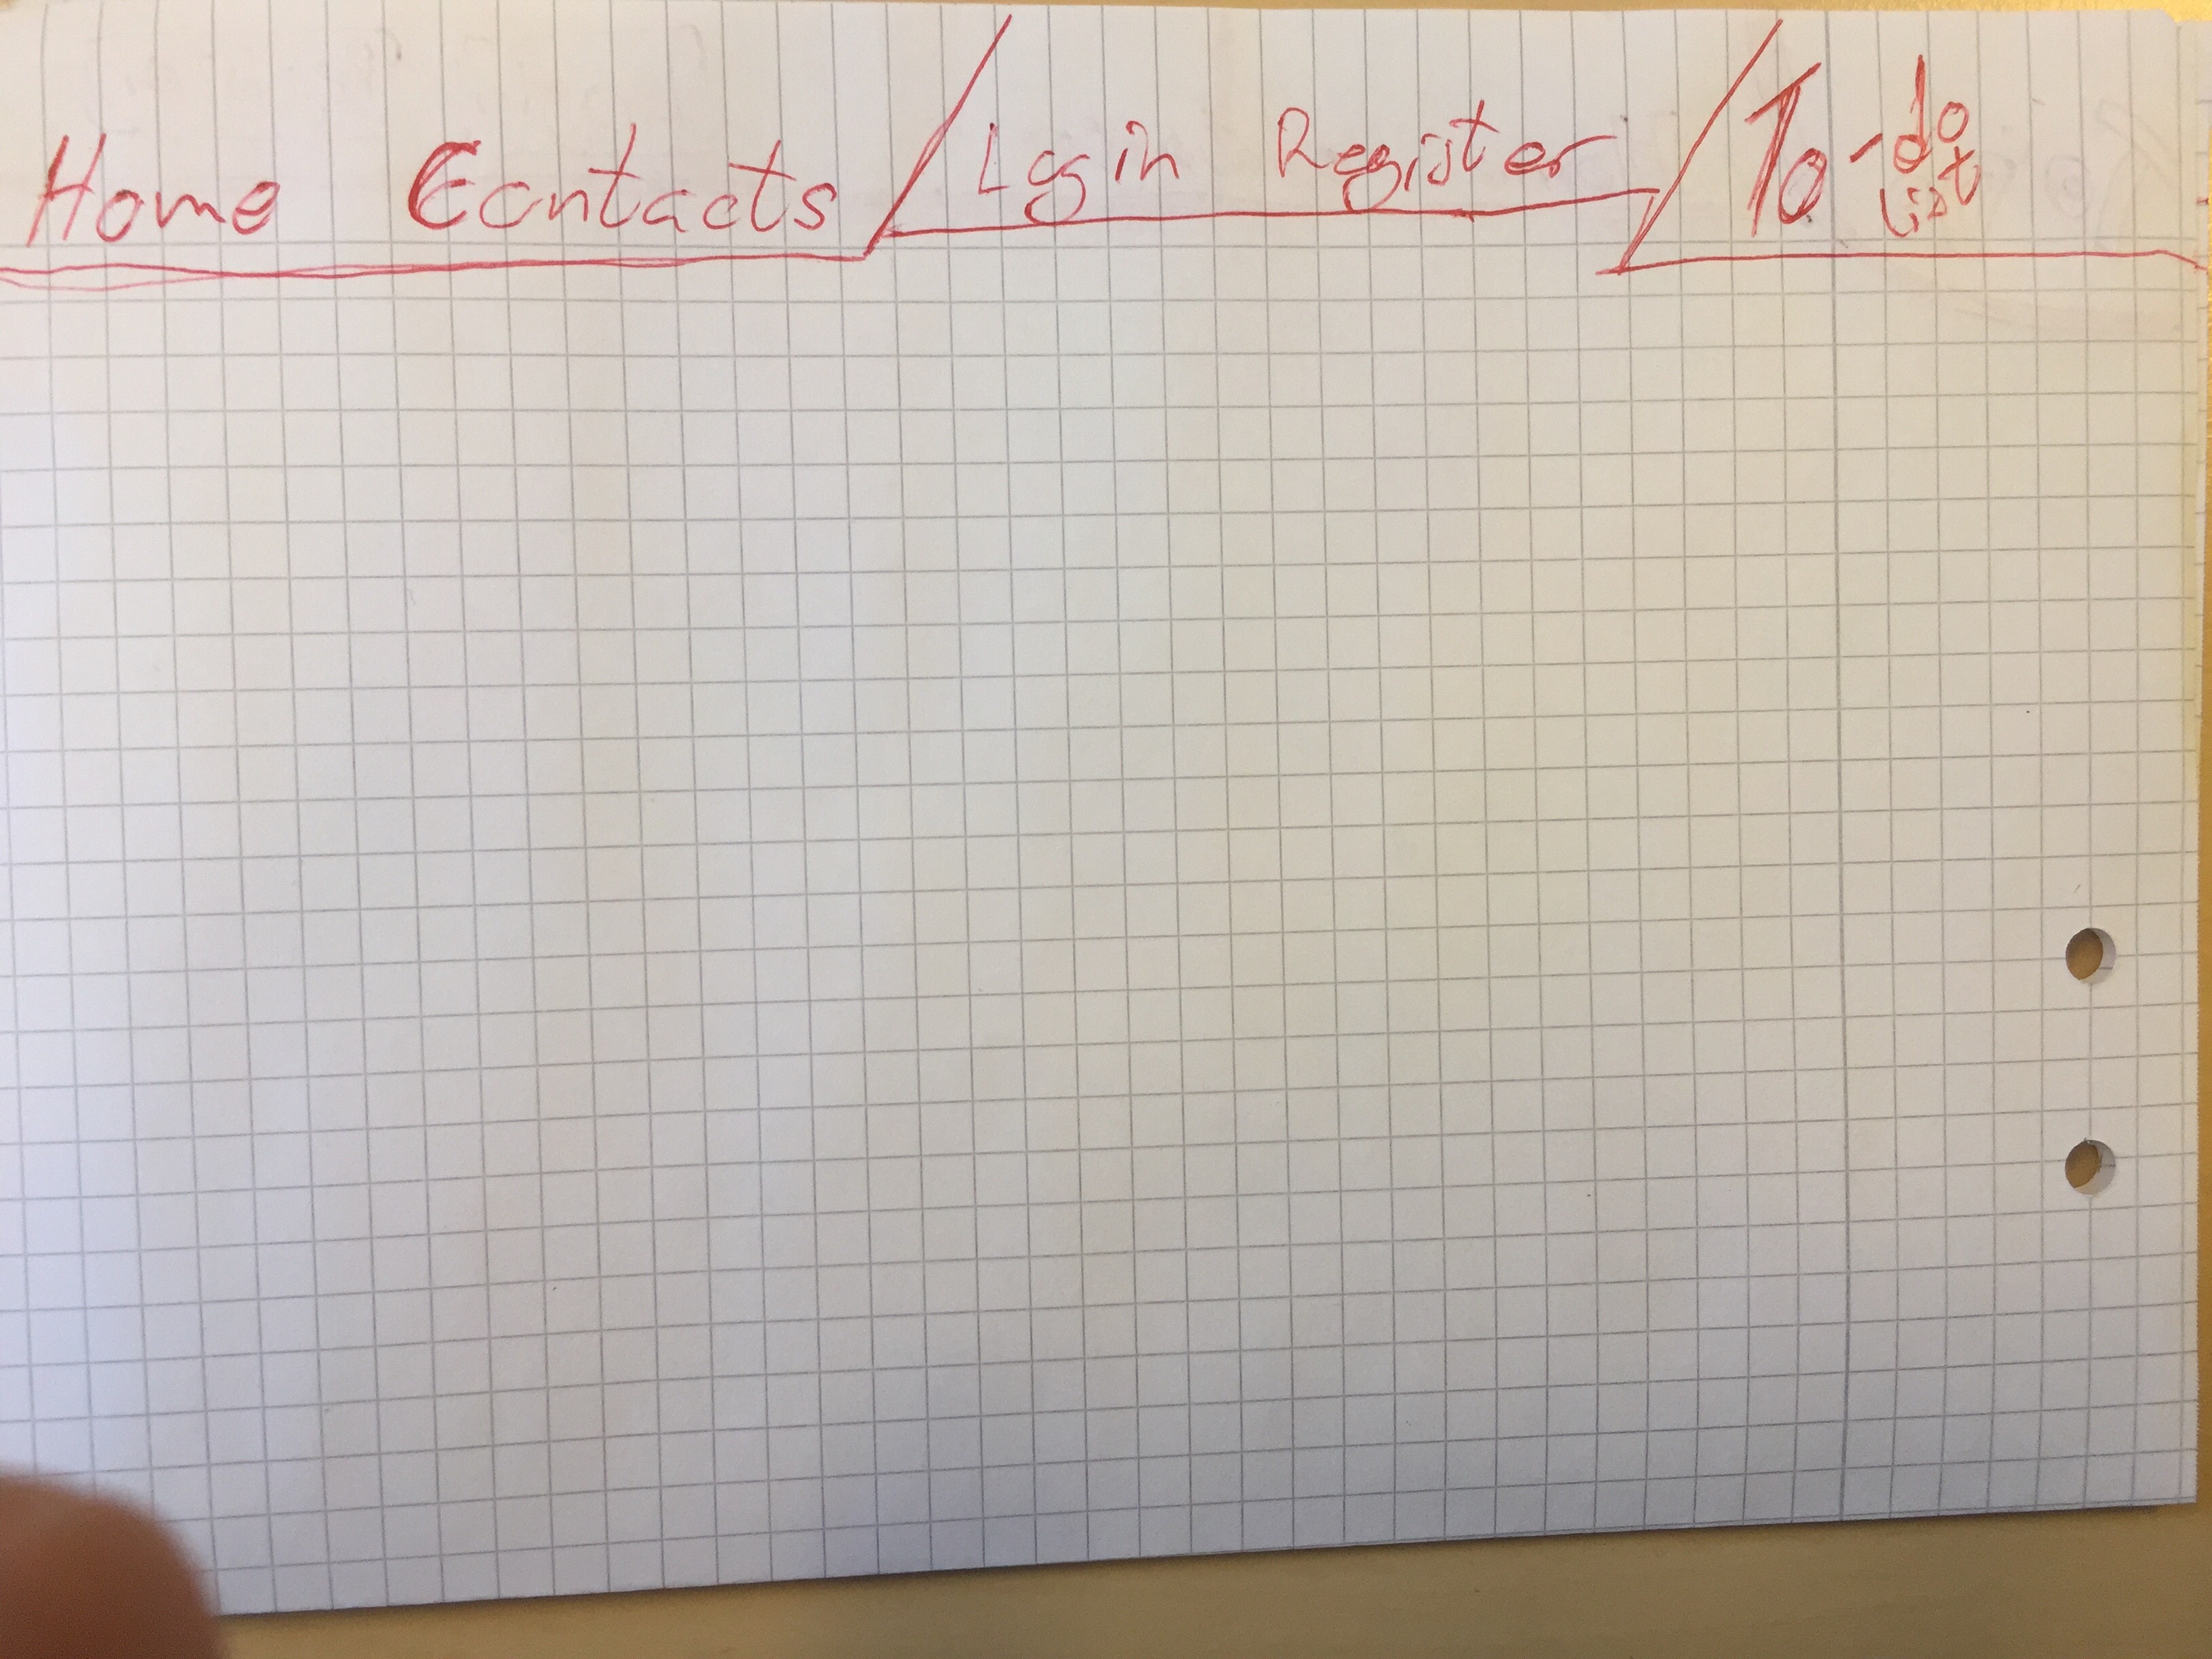 Home Contacts / Login Register / To-do list